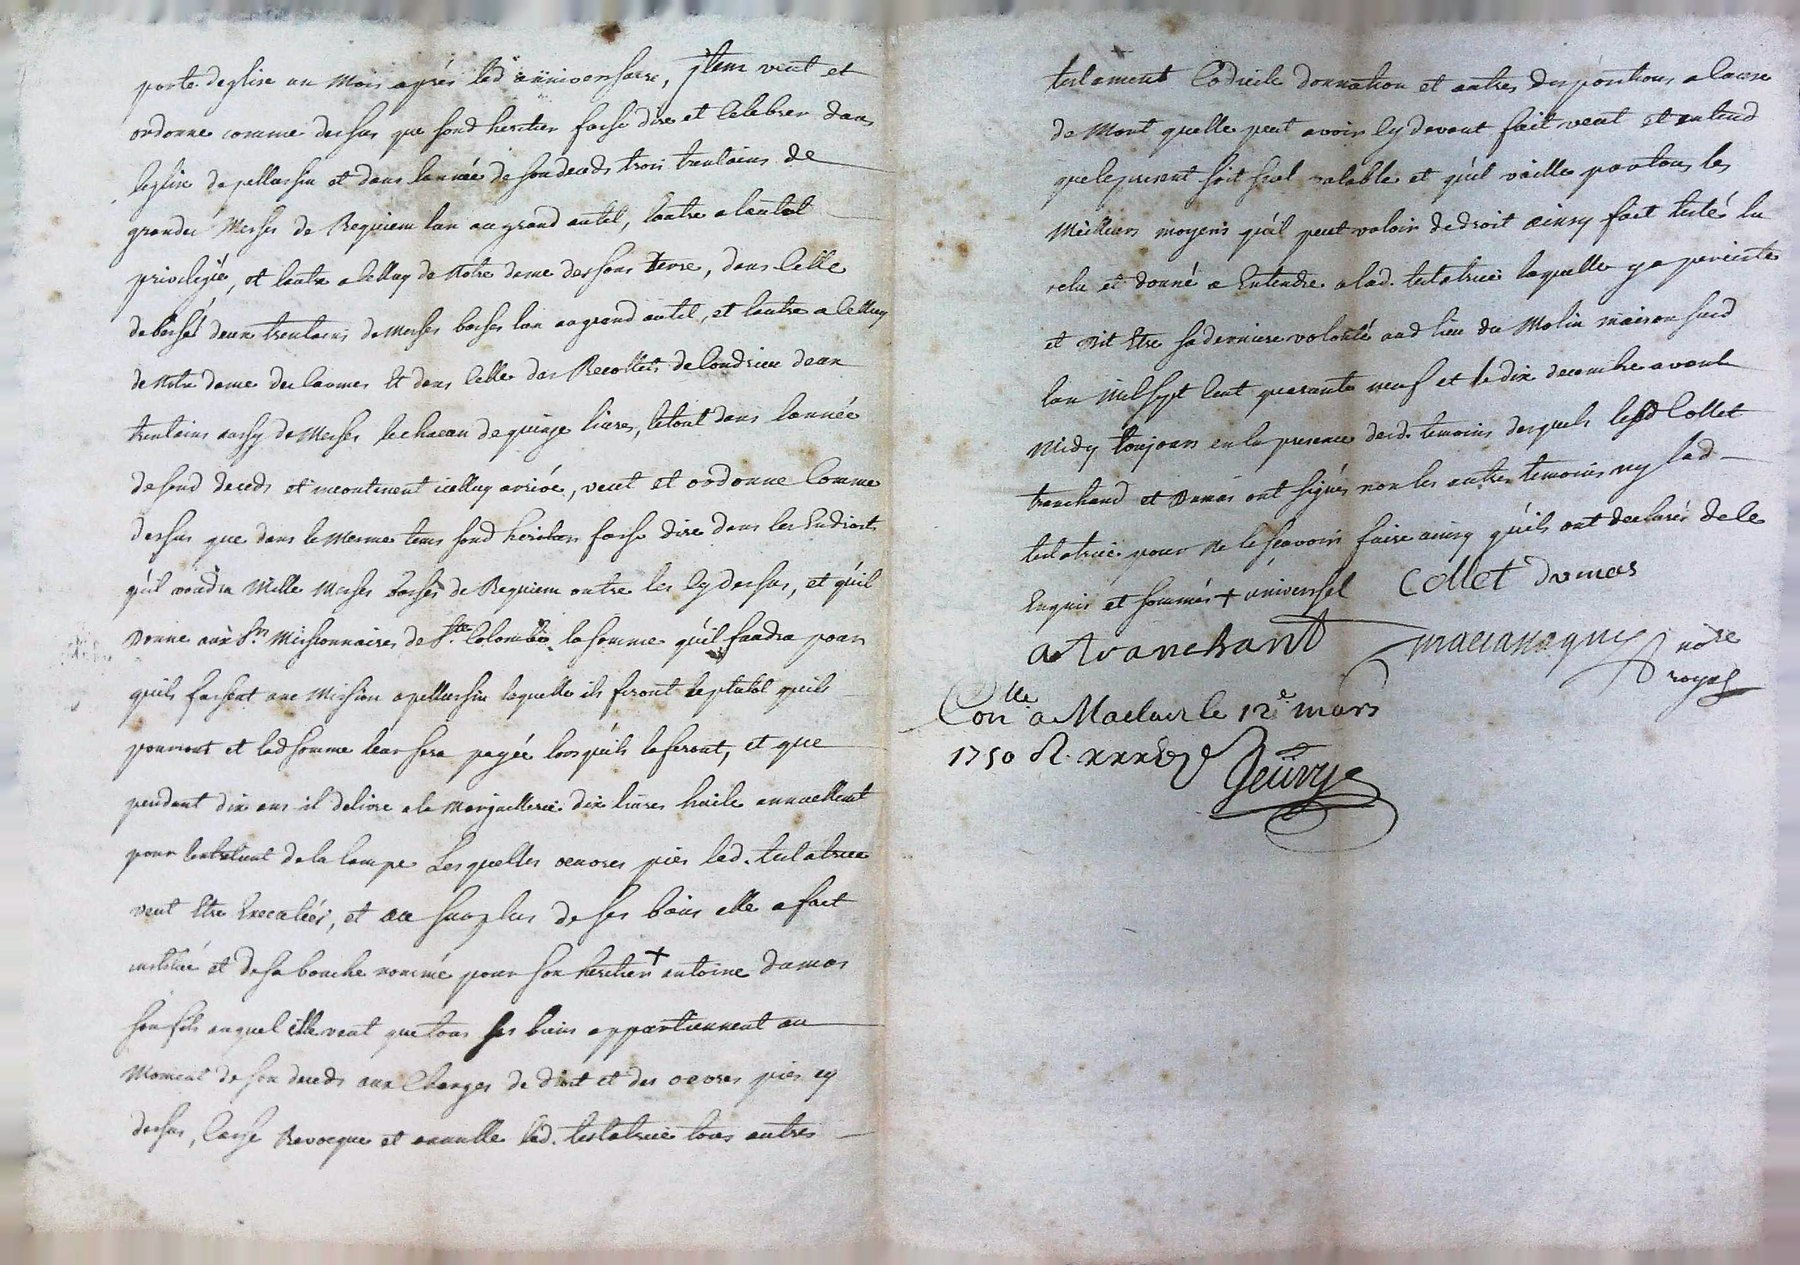 porte d'eglise un Mois aprés led anniversaire, jtem veut et
ordonne comme dessus que sond heritier fasse dire et Celebrer dans
leglise de pellussin et dans lannée de son deceds trois trentains de
grandes Messes de Requiem lun au grand autel, lautre a lautel
privilegié, et lautre a celluy de Notre dame dessous terre, dans Celle
de deux trentains de Messes basses lun au grand autel, et lautre a celluy
de Notre dame des Carmes Et dans Celle des Recollets de Condrieu deux
trentains aussy de Messes le chacun de quinze livres, le tout dans lannée
de sond deceds et incontinent icelluy arrivé, veut et ordonne Comme
dessus que dans le Mesme tems sond heritier fasse dire dans les Endroits
qu'il voudra Mille Messes basses de Requiem outre les Cy dessus, et qu'il
Donne aux Srs Missionnaires de Ste Colombe la somme qu'il faudra pour
quils fassent une Mission a pellussin laquelle ils feront le plutot quils
pourront et lad somme leur sera payée lors qu'ils la feront, et que
pendant dix ans il delivre a la Marguillerie dix livres huile annuellement
pour lentretient de la lampe Lesquelles oeuvres pies lad. testatrice
veut Etre Executées, et au surplus de ses biens elle a fait
institué et de sa bouche nommé pour son heritier + antoine dumas
son fils auquel Elle veut que tous ses biens appartiennent au
Moment de son deceds aux Charges de droit et des oeuvres pies cy
dessus, Casse Revocque et annulle lad. testatrice tous autres
testament Codicile donnation et autres dispositions a Cause
de Mort quelle peut avoir Cy devant fait veut et entend
que le present soit seul valable et qu'il vaille par tous les
Meilleurs moyens qu'il peut valoir de droit ainsy fait testé lu
relu et donné a Entendre a lad. testatrice laquelle y a persisté
et dit Etre sa derniere volonté aud lieu du Molin maison sud
lan Mil sept Cent quarante neuf et le dix decembre avant
Midy toujours en la presence desd. temoins desquels lesd Collet
tranchand et Dumas ont signés non les autres temoins ny lad
testatrice pour ne le sçavoir faire ainsy qu'ils ont declarés de ce
Enquis et sommés + universel Collet dumas
a tranchant
no.re
royal
Con.lle a Maclas le 12.e mars
1750